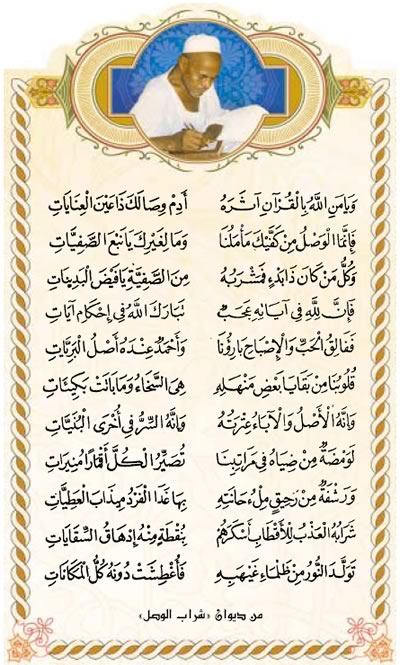 وَيَا مَنِ اللَّهُ بِالْقُرْآنِ آثَرَهُ أَدِمْ وِصَالَكَ ذَا عَيْنَ الْعِنَايَاتِ
فَإِنَّمَا الْوَصْلُ مِنْ كَفَّيْكَ مَأْمَلُنَا وَمَا لِغَيْرِكَ يَا نَبْعَ الصَّفِيَّاتِ
وَكُلُّ مَنْ كَانَ ذَا بَدْءٍ فَمَشْرَبُهُ مِنَ الصَّفِيَّةِ يَا فَيْضَ الْبَدِيئَاتِ
فَإِنَّ لِلَّهِ فِي آيَاتِهِ عَجَبٌ تَبَارَكَ اللَّهُ فِي إِحْكَامِ آيَاتِ
فَفَالِقُ الْحَبِّ وَالْإِصْبَاحِ بَارِؤُنَا وَأَحْمَدٌ عِنْدَهُ أَصْلُ الْبَرِيَّاتِ
قُلُوبُنَا مِنْ بَقَايَا بَعْضِ مَنْهَلِهِ هِيَ السَّخَاءُ وَمَا بَانَتْ بِكَيْئَاتِ
وَإِنَّهُ الْأَصْلُ وَالْآبَاءُ عِتْرَتُهُ وَإِنَّهُ السِّرُّ فِي أُخْرَى الْبُنَيَّاتِ
لَوَمْضَةٌ مِنْ ضِيَاهُ فِي مَرَاتِبِنَا تُصَيِّرُ الْكُلَّ أَقْمَارًا مُنِيرَاتِ
وَرَشْفَةٌ مِنْ رَحِيقٍ مِلْءُ حَانَتِهِ بِهَا غَدَا الْفَرْدُ مِهْذَابَ الْعَطِيَّاتِ
شَرَابُهُ الْعَذْبُ لِلْأَقْطَابِ أَسْكَرَهُمْ بِنُقْطَةٍ مِنْهُ إِدْهَاقُ السِّقَايَاتِ
تَوَلَّدَ النُّورُ مِنْ ظَلْمَاءِ غَيْهَبِهِ فَأُغْطِشَتْ دُونَهُ كُلُّ الْمَكَانَاتِ
من ديوان «شراب الوصل»